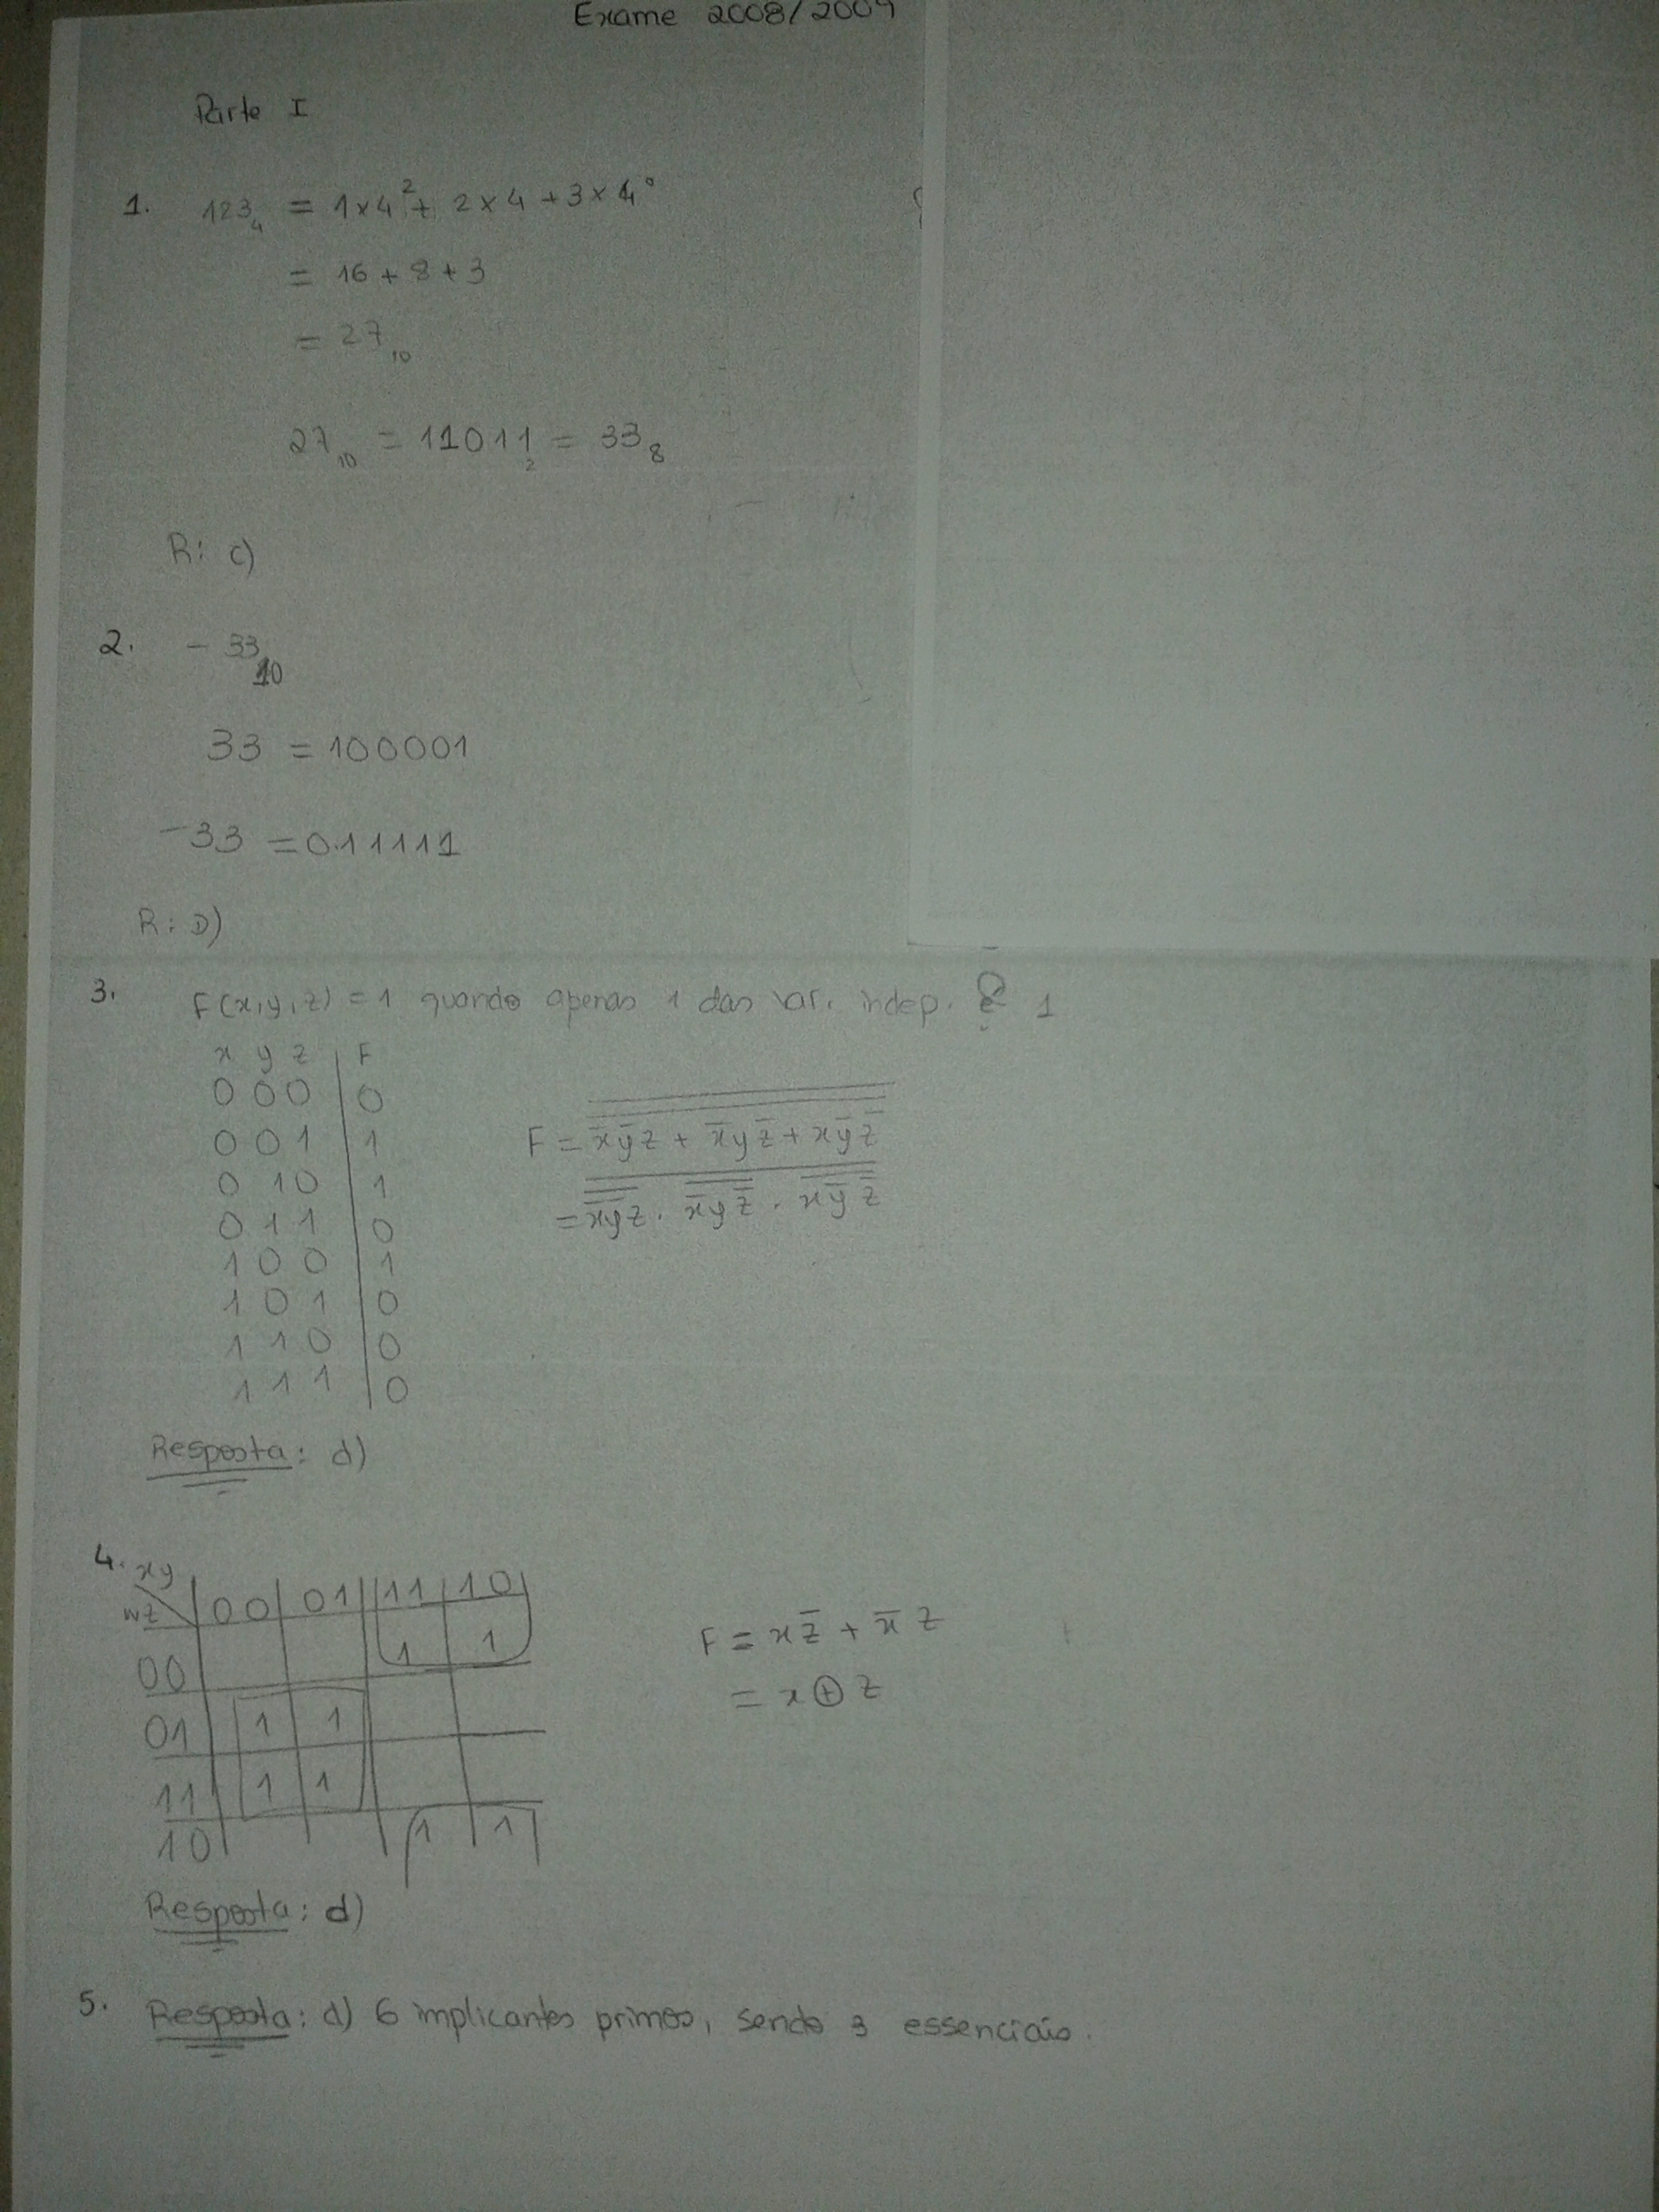 Exame 2008/2009
Parte I
1. 123₄ = 1×4² + 2×4 + 3×4⁰
= 16 + 8 + 3
= 27₁₀
27₁₀ = 11011₂ = 33₈
R: c)
2. - 33₁₀
33 = 100001
-33 = 011111
R: D)
3. F(x,y,z) = 1 quando apenas 1 das var. indep. é 1
x y z | F
0 0 0 | 0
0 0 1 | 1
0 1 0 | 1
0 1 1 | 0
1 0 0 | 1
1 0 1 | 0
1 1 0 | 0
1 1 1 | 0
F = x̅y̅z + x̅yz̅ + xy̅z̅
= x̅y̅z . x̅yz̅ . xy̅z̅
Resposta: d)
4. xy
wz 00 01 11 10
00 1 1
01 1 1
11 1 1
10 1 1
F = xz̅ + x̅z
= x⊕z
Resposta: d)
5. Resposta: d) 6 implicantes primos, sendo 3 essenciais.